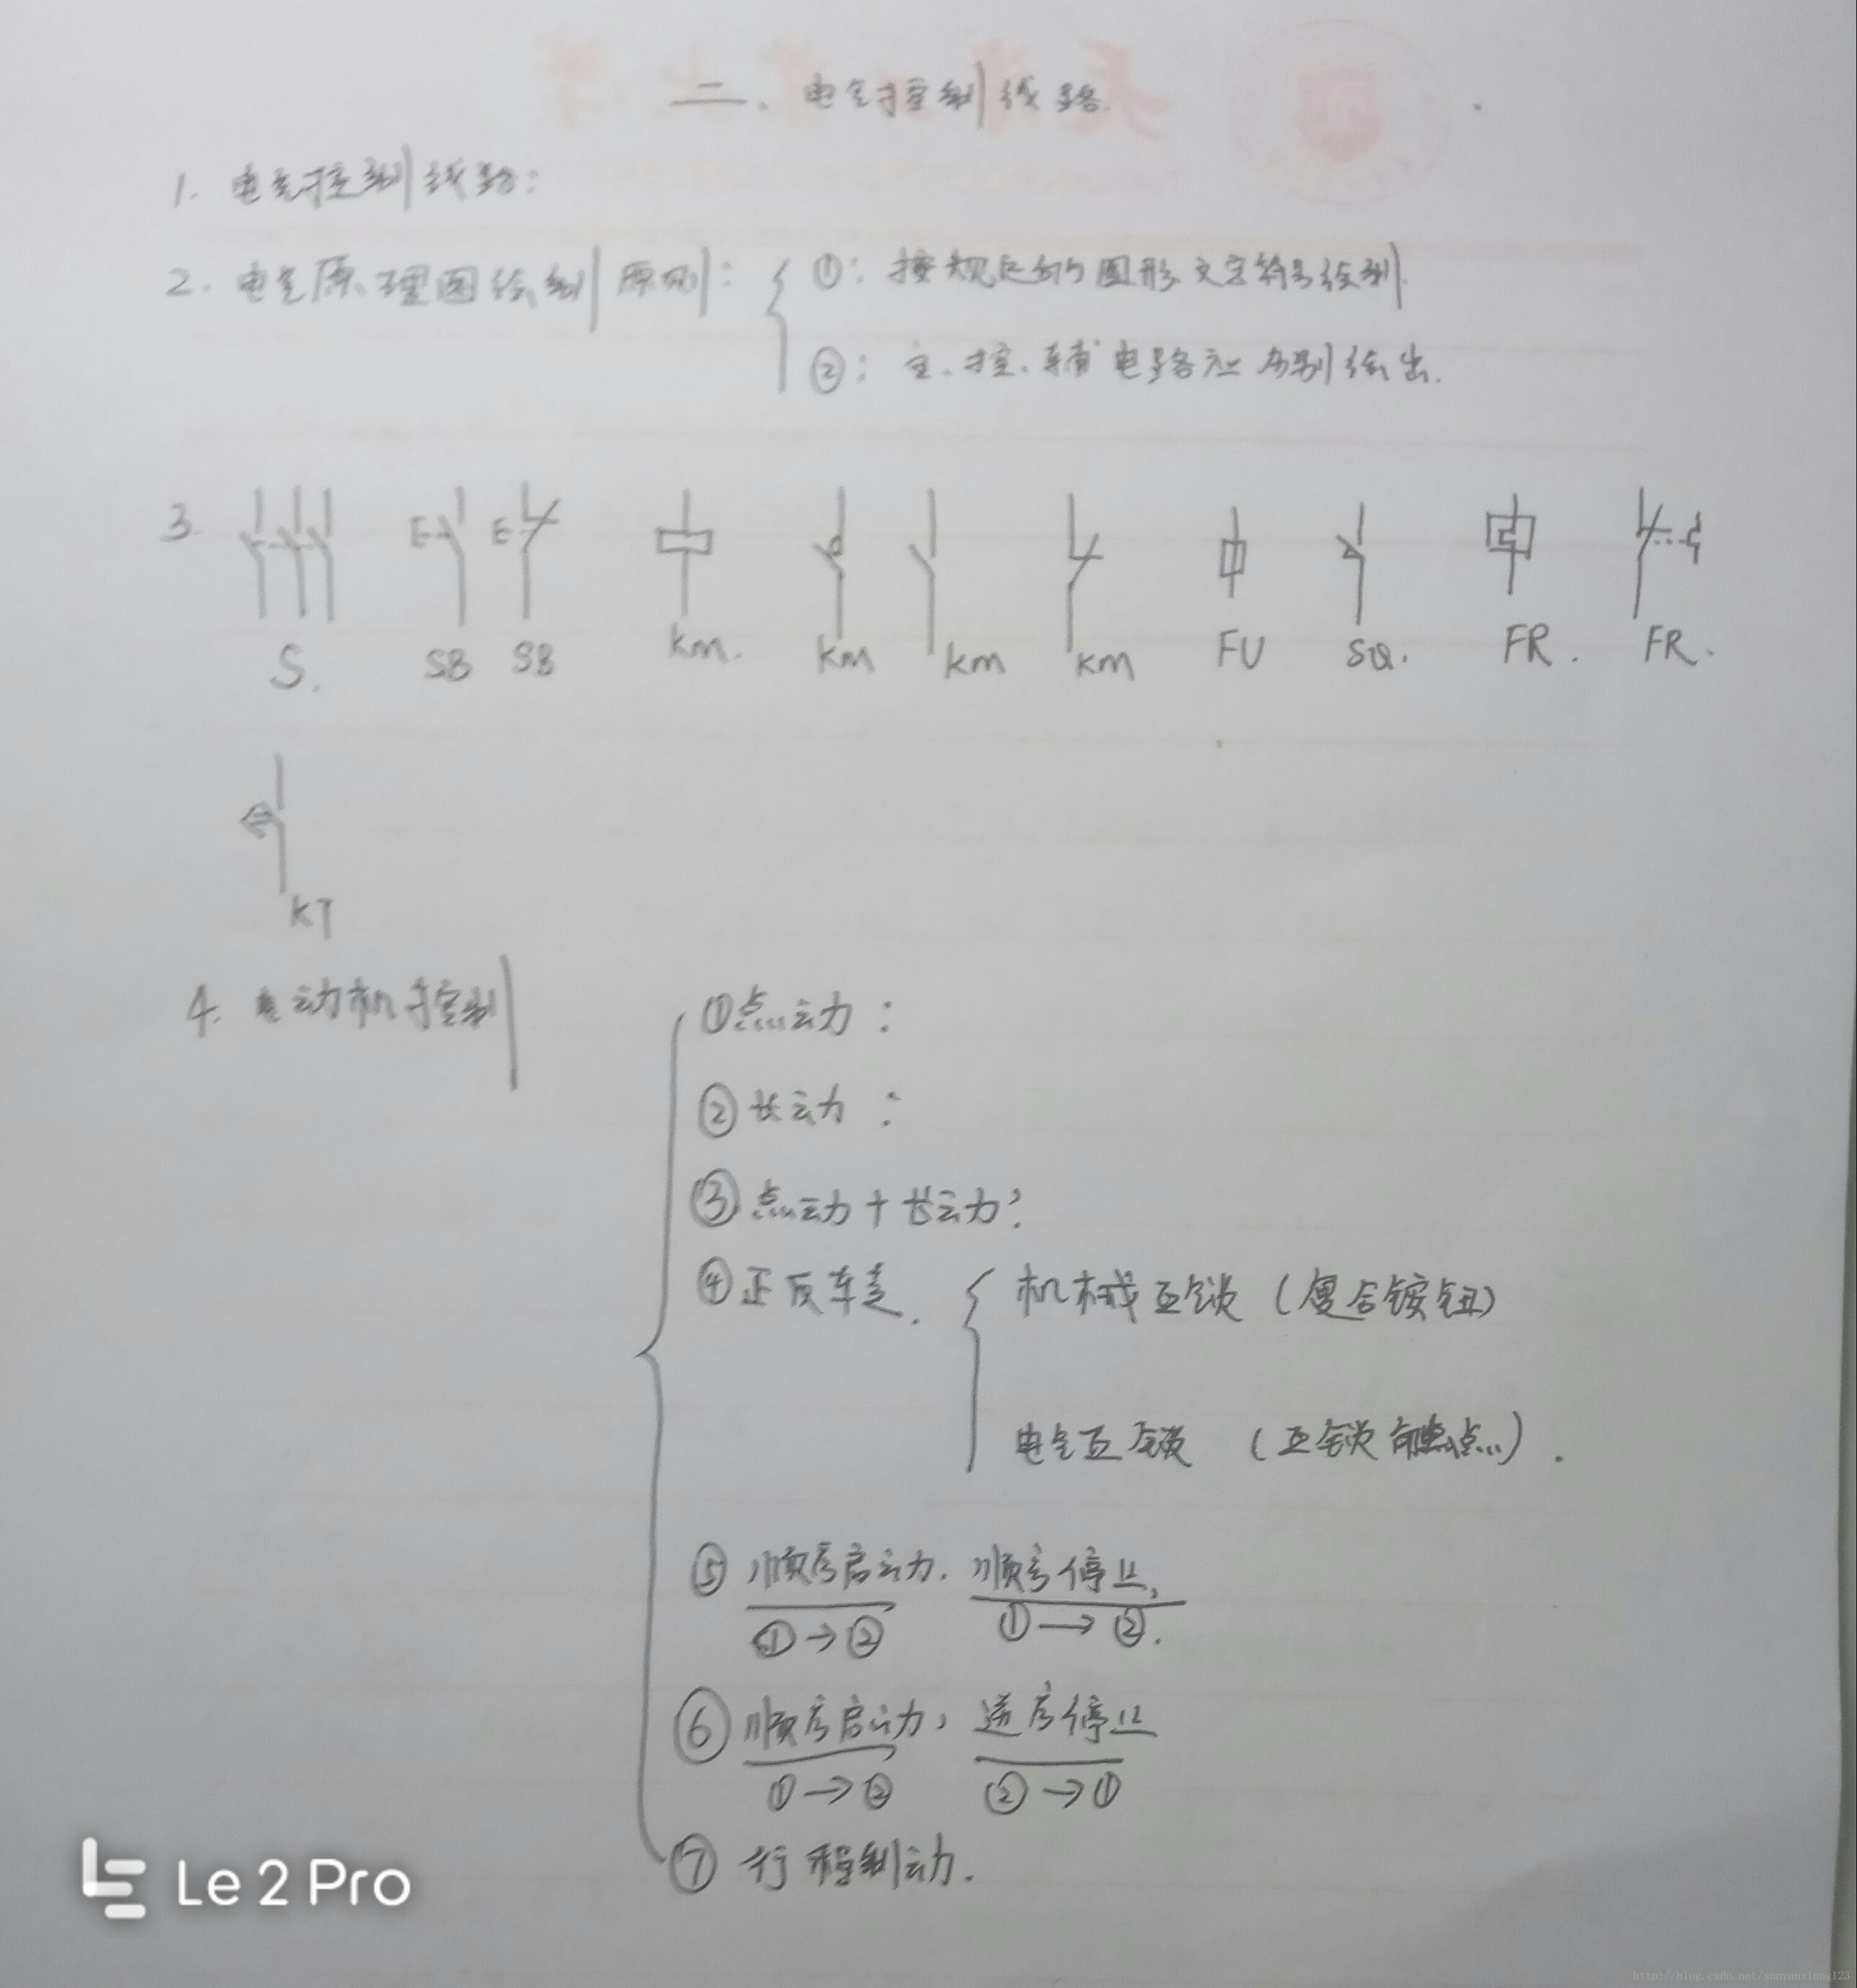 二、电气控制线路.
1. 电气控制线路:
2. 电气原理图绘制原则: ①: 按规定的图形.文字符号绘制.
②: 主、控、辅电路应分别绘出.
3.
S. SB SB KM. KM KM KM FU SQ. FR. FR.
KT
4. 电动机控制
①点动:
②长动:
③点动+长动:
④正反转. 机械互锁 (复合按钮)
电气互锁 (互锁触点).
⑤ 顺序启动. 顺序停止,
①→② ①→②.
⑥ 顺序启动, 逆序停止
①→② ②→①
⑦ 行程制动.
Le 2 Pro
http://blog.csdn.net/sunyanxiong123